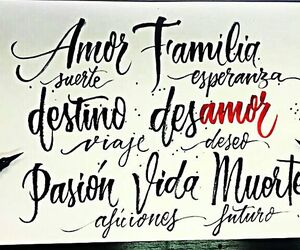 Amor Familia
suerte esperanza
destino desamor
viaje deseo
Pasión Vida Muerte
aficiones futuro